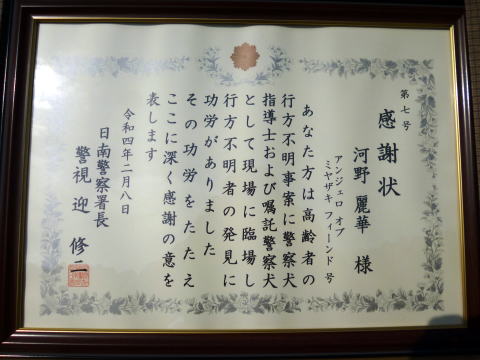 第七号
感謝状
河野 麗華 様
アンジェロ オブ
ミヤザキ フィーンド 号
あなた方は高齢者の
行方不明事案に警察犬
指導士および嘱託警察犬
として現場に臨場し
行方不明者の発見に
功労がありました
その功労をたたえ
ここに深く感謝の意を
表します
令和四年二月八日
日南警察署長
警視 迎 修二